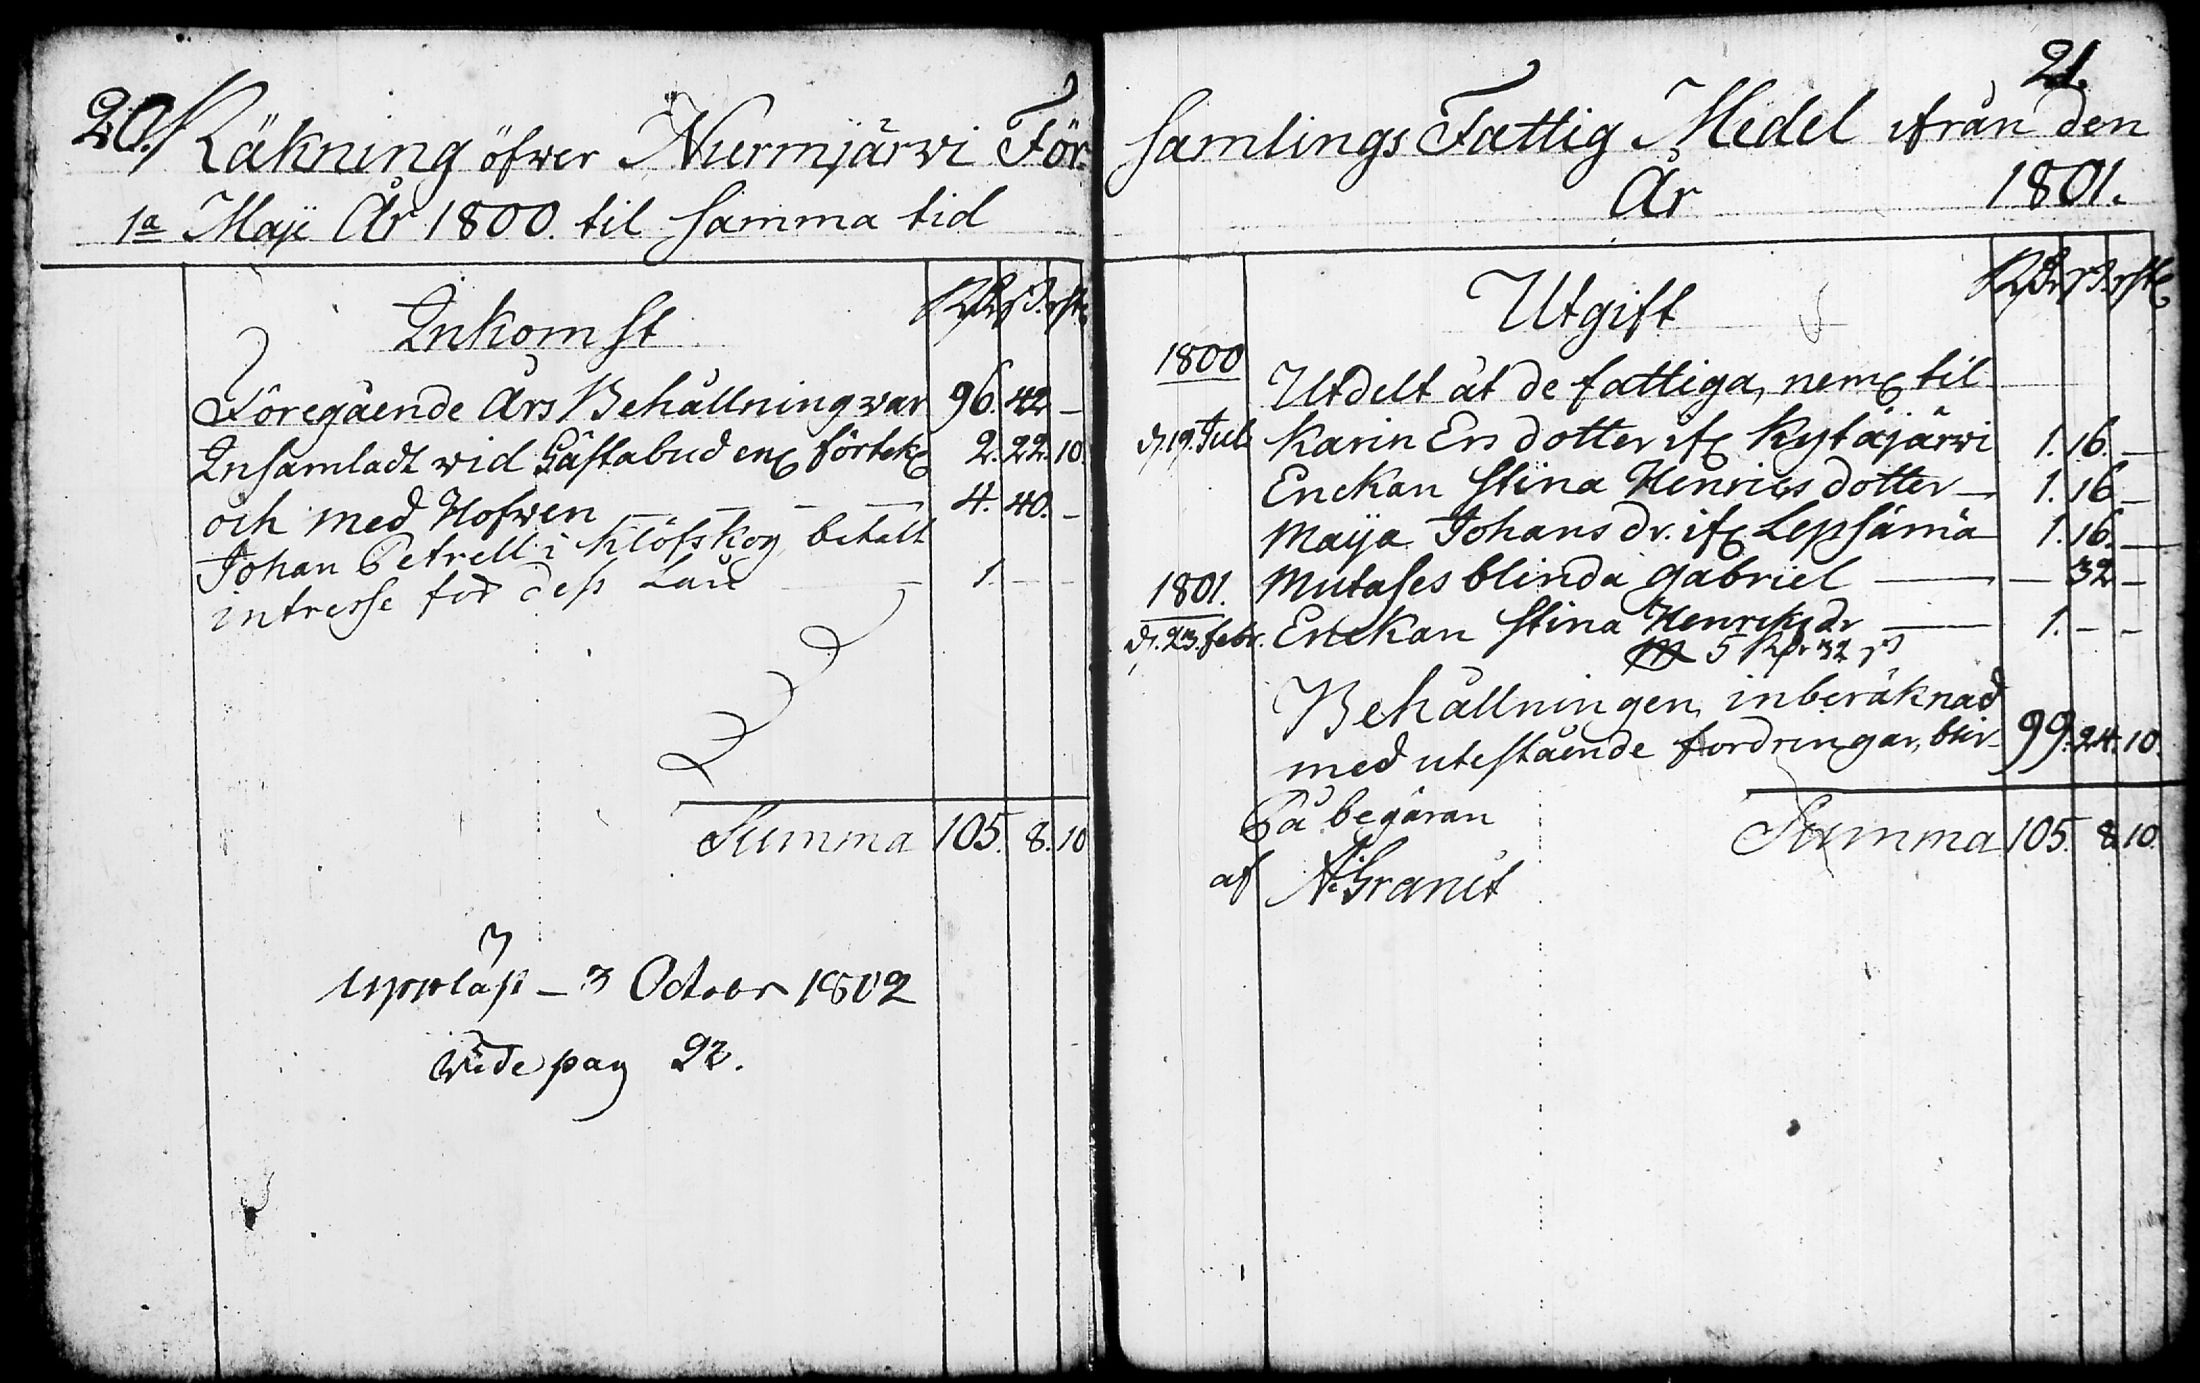 20.
Räkning öfwer Nurmjärwi För-
1a Maji År 1800. til samma tid
Inkomst Rdr ß. rst.
Föregående Års Behållning war 96. 42 —
Insamladt wid Gästabud enl. förtekn. 2. 22. 10.
och med Hofwen — — — 4. 40. —
Johan Petrell i Klöfskog betalt
intresse för dess Lån — 1. — —
Summa 105. 8. 10
Uppläst — 3 Octobr 1802
Vide pag 22.
21.
samlings Fattig Medel ifrån den
År 1801.
Utgift Rdr ß. rst.
1800
Utdelt åt de fattiga, neml. til
d. 19. Juli Karin Ersdotter if. Kytäjärwi 1. 16. —
Enckan Stina Henrics dotter — 1. 16 —
Maija Johans dr. if. Lepsämä 1. 16. —
1801. Mutases blinda Gabriel — — 32 —
d. 23. febr. Enckan Stina Henriks dr — 1. — —
5 Rdr 32 ß
Behållningen, inberäknad
med utestående fordringar, blir 99. 24. 10.
Summa 105. 8. 10.
På begäran
af A. Granit